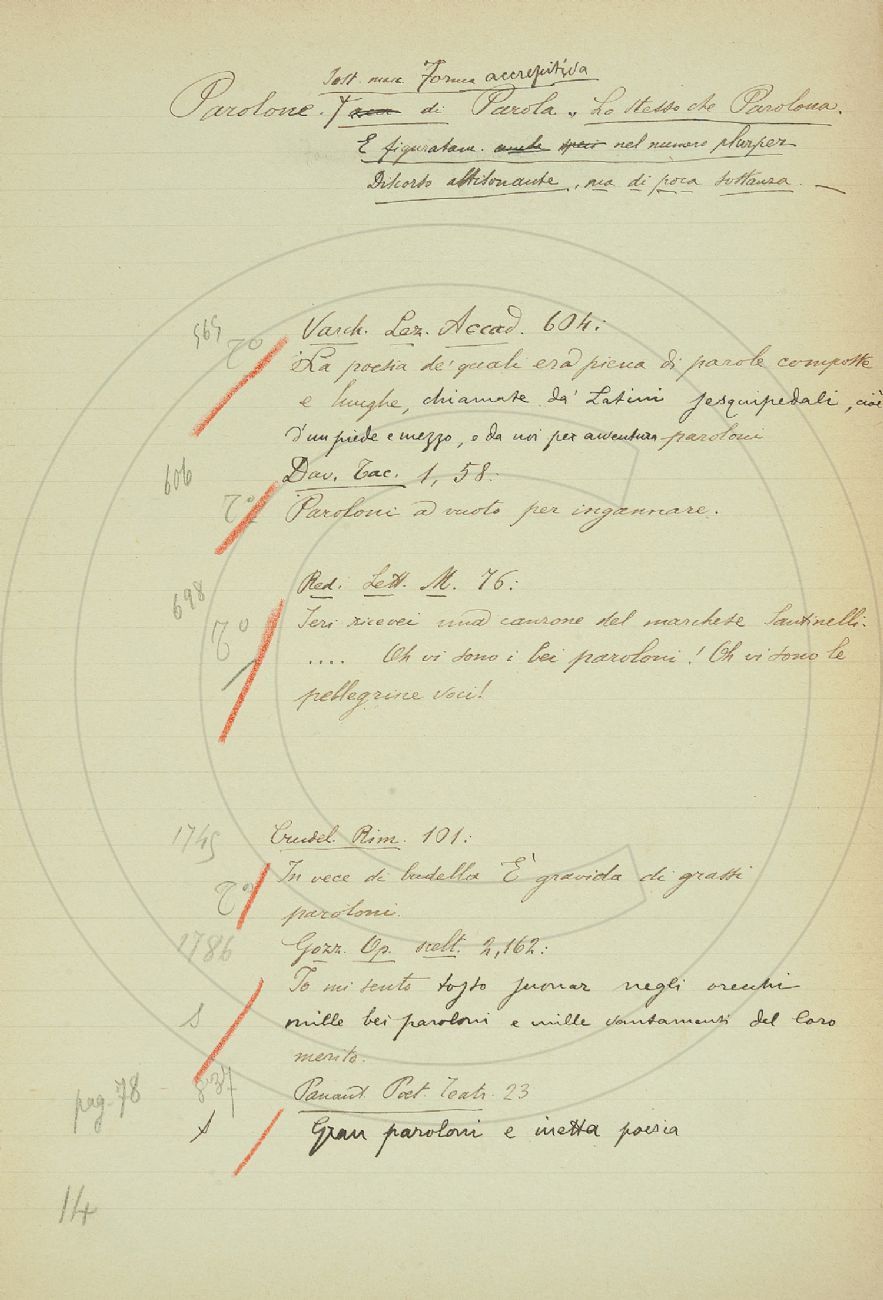 Sost. masc. Forma accrescitiva
Parolone. di Parola. Lo stesso che Parolona.
E figuratam. anche nel numero plur per
Discorso altisonante, ma di poca sostanza. —
565 Varch. Lez. Accad. 604:
La poesia de' quali era piena di parole composte
e lunghe, chiamate da' Latini sesquipedali, cioè
d'un piede e mezzo, e da noi per avventura paroloni
606 Dav. Tac. 1, 58:
Paroloni a vuoto per ingannare.
698 Red. Lett. M. 76:
Ieri ricevei una canzone del marchese Santinelli.
.... Oh vi sono i bei paroloni! Oh vi sono le
pellegrine voci!
1745 Crudel. Rim. 101:
In vece di budella È gravida di grassi
paroloni.
1786 Gozz. Op. scelt. 2,162:
Io mi sento tosto suonar negli orecchi
S mille bei paroloni e mille vantamenti del loro
merito.
pag. 78 Panant. Poet. Teatr. 23
Gran paroloni e inetta poesia
14